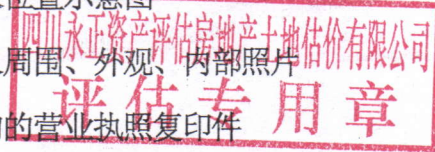 位置示意图
四川永正资产评估房地产土地估价有限公司
周围、外观、内部照片
评估专用章
的营业执照复印件